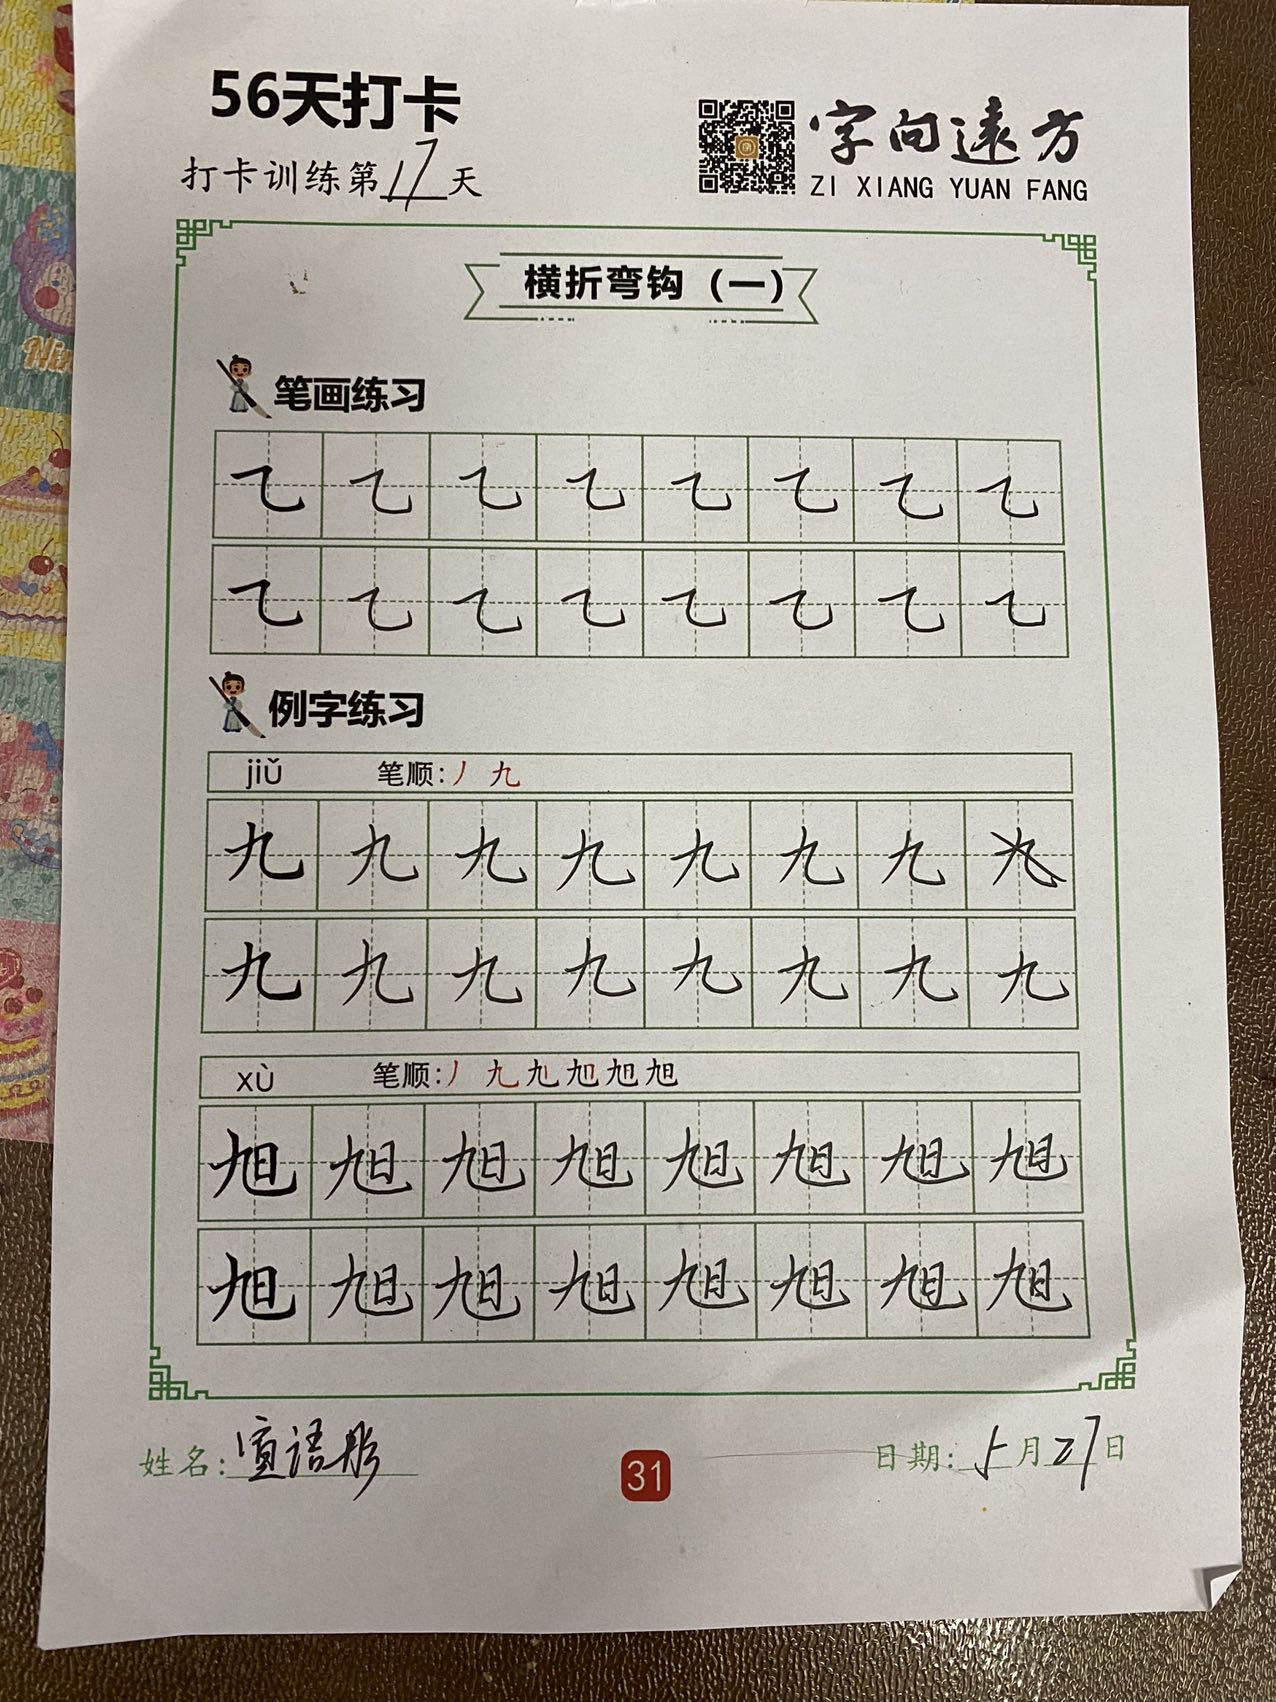 56天打卡
打卡训练第17天
字向远方
ZI XIANG YUAN FANG
横折弯钩（一）
笔画练习
乙 乙 乙 乙 乙 乙 乙 乙
乙 乙 乙 乙 乙 乙 乙 乙
例字练习
jiǔ 笔顺：丿 九
九 九 九 九 九 九 九 九
九 九 九 九 九 九 九 九
xù 笔顺：丿 九 旭 旭 旭
旭 旭 旭 旭 旭 旭 旭 旭
旭 旭 旭 旭 旭 旭 旭 旭
姓名：宣语彤
31
日期：5月27日